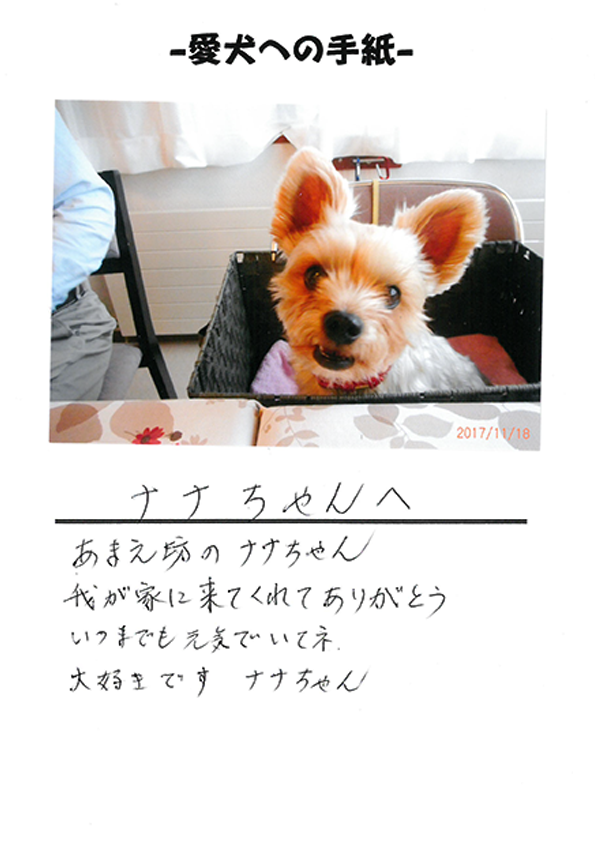 -愛犬への手紙-
2017/11/18
ナナちゃんへ
あまえ坊のナナちゃん
我が家に来てくれてありがとう
いつまでも元気でいてネ.
大好きです ナナちゃん